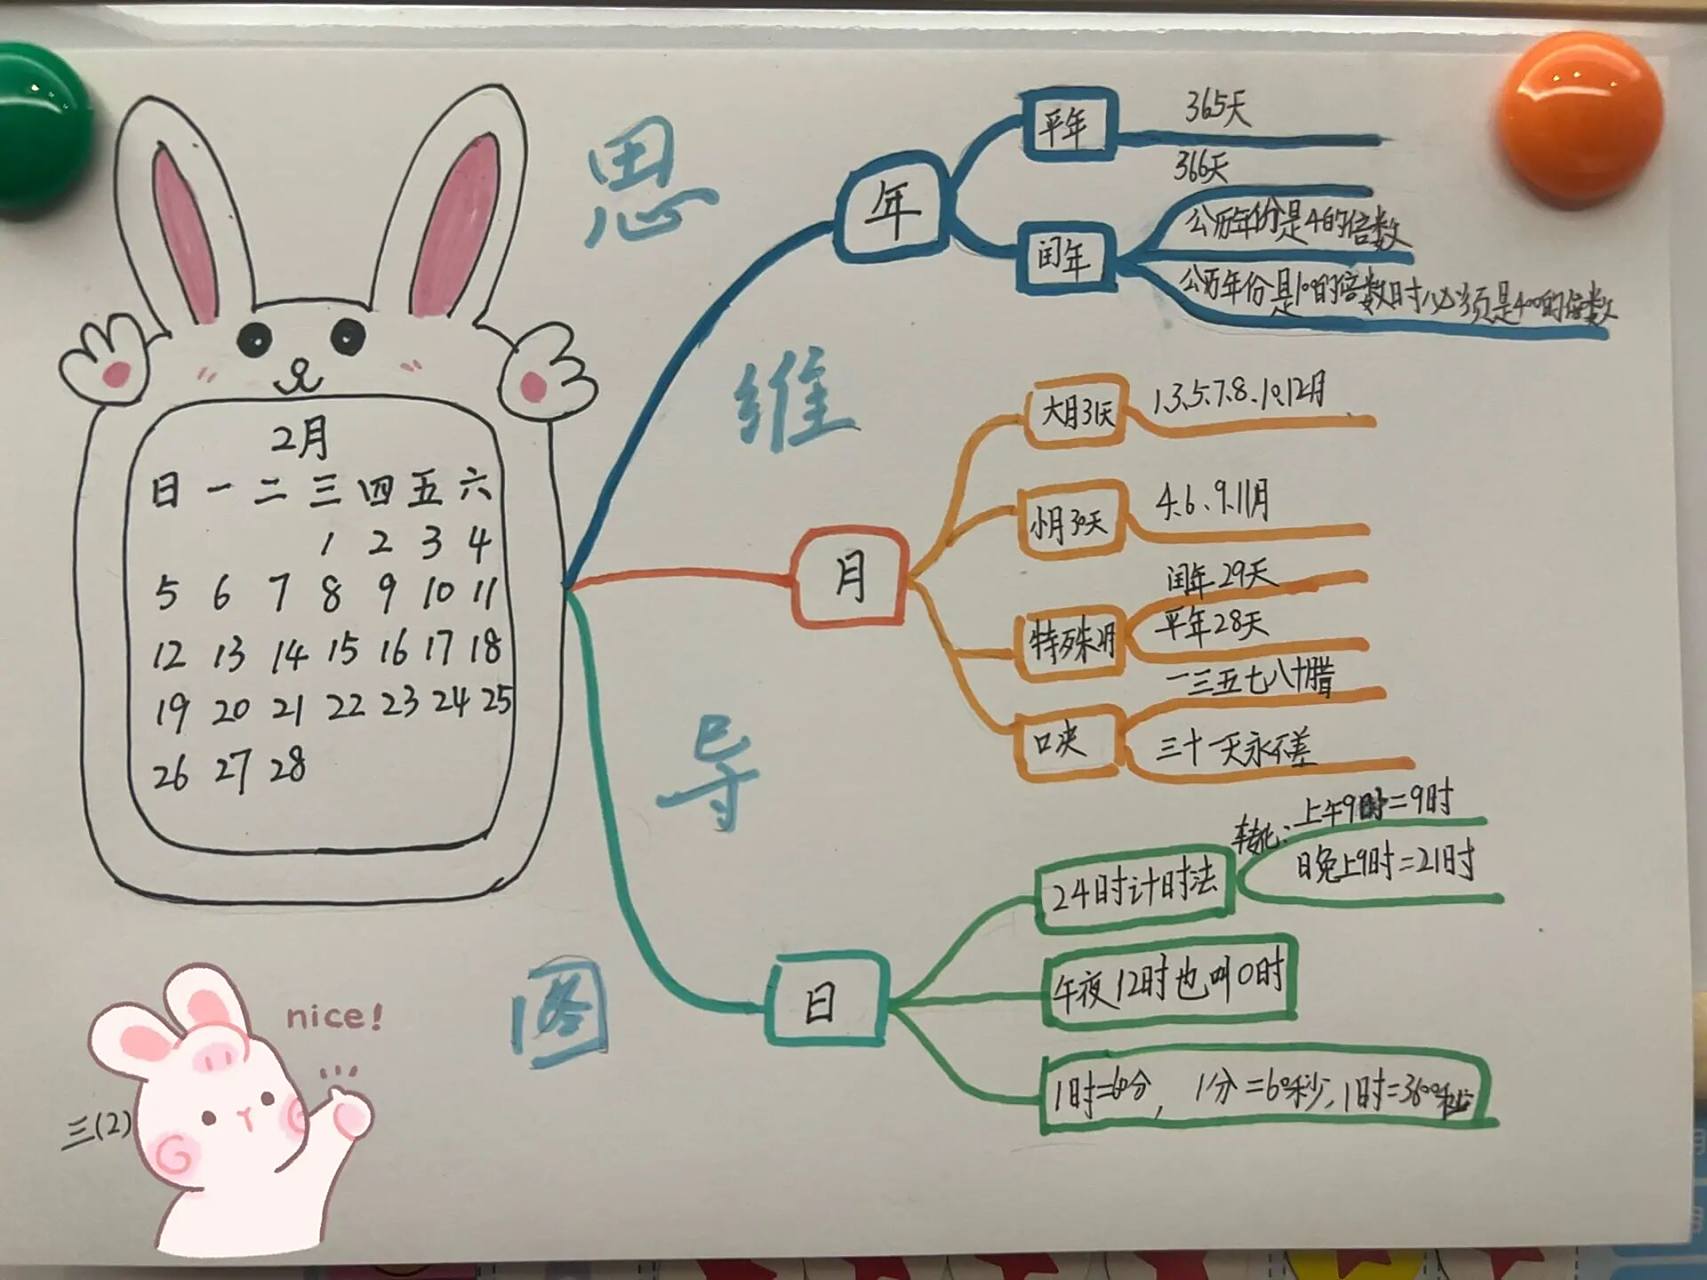 思
维
导
图
2月
日 一 二 三 四 五 六
1 2 3 4
5 6 7 8 9 10 11
12 13 14 15 16 17 18
19 20 21 22 23 24 25
26 27 28
年
平年
365天
闰年
366天
公历年份是4的倍数
公历年份是100的倍数时必须是400的倍数
月
大月31天
1.3.5.7.8.10.12月
小月30天
4.6.9.11月
特殊2月
闰年29天
平年28天
口决
一三五七八十腊
三十一天永不差
日
24时计时法
转化:
上午9时=9时
晚上9时=21时
午夜12时也叫0时
1时=60分, 1分=60秒, 1时=3600秒
nice!
三(2)